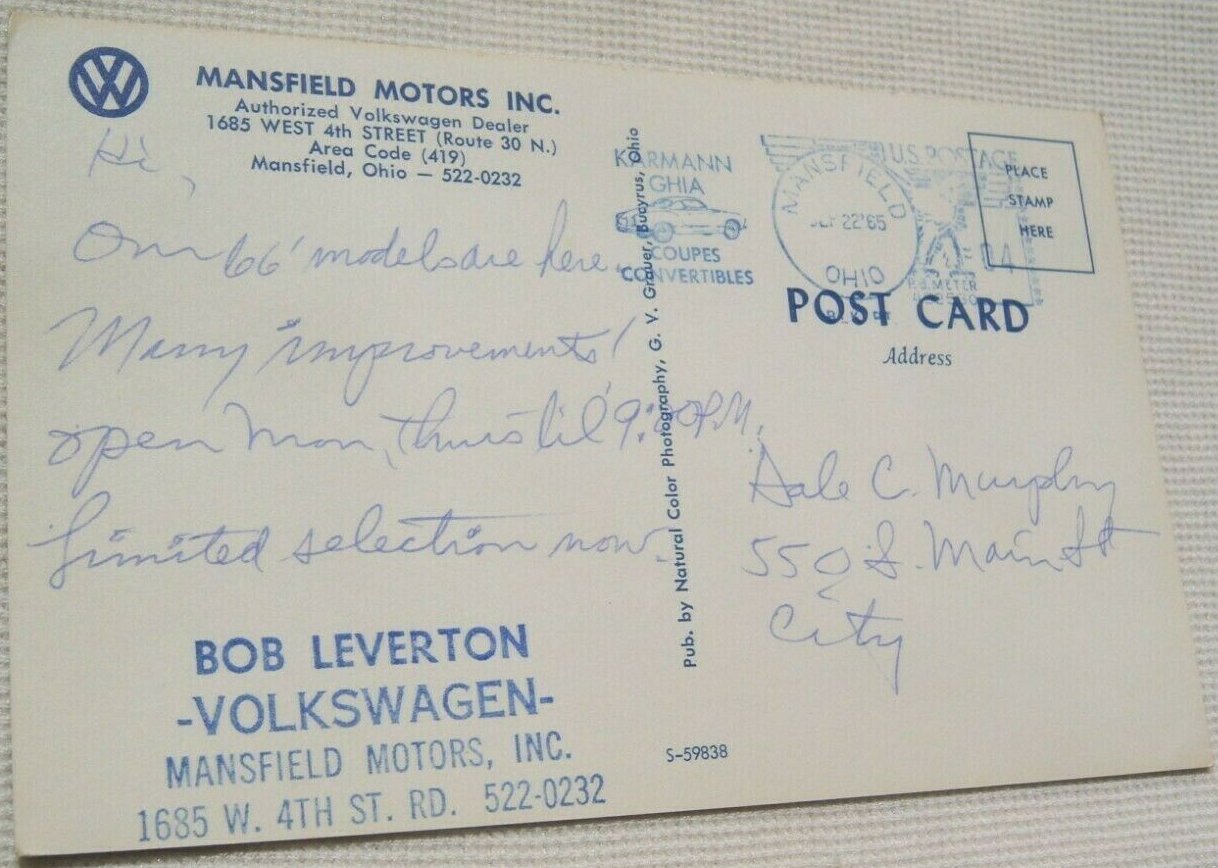 MANSFIELD MOTORS INC.
Authorized Volkswagen Dealer
1685 WEST 4th STREET (Route 30 N.)
Area Code (419)
Mansfield, Ohio — 522-0232
Hi,
Our 66' models are here.
Many improvements!
open Mon, Thurs til 9:00 P.M.
Limited selection now.
BOB LEVERTON
-VOLKSWAGEN-
MANSFIELD MOTORS, INC.
1685 W. 4TH ST. RD. 522-0232
Pub. by Natural Color Photography, G. V. Grauer, Bucyrus, Ohio
KARMANN
GHIA
COUPES
CONVERTIBLES
MANSFIELD
SEP 22'65
OHIO
U.S. POSTAGE
P.B. METER
PLACE
STAMP
HERE
POST CARD
Address
Dale C. Murphy
550 S. Main St
City
S-59838